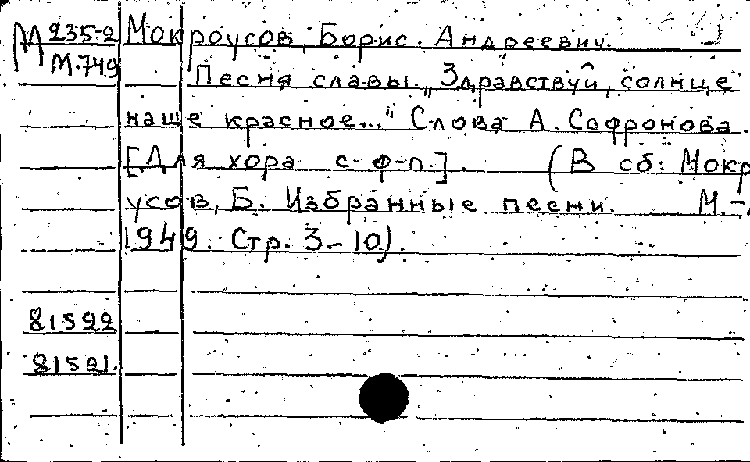 М 235-2 Мокроусов, Борис Андреевич.
М.749 Песня славы. „Здравствуй, солнце
наше красное..." Слова А. Софронова.
[Для хора с ф-п.]. (В сб: Мокр
усов, Б. Избранные песни. М.-
1949. Стр. 3-10).
81522
81521.